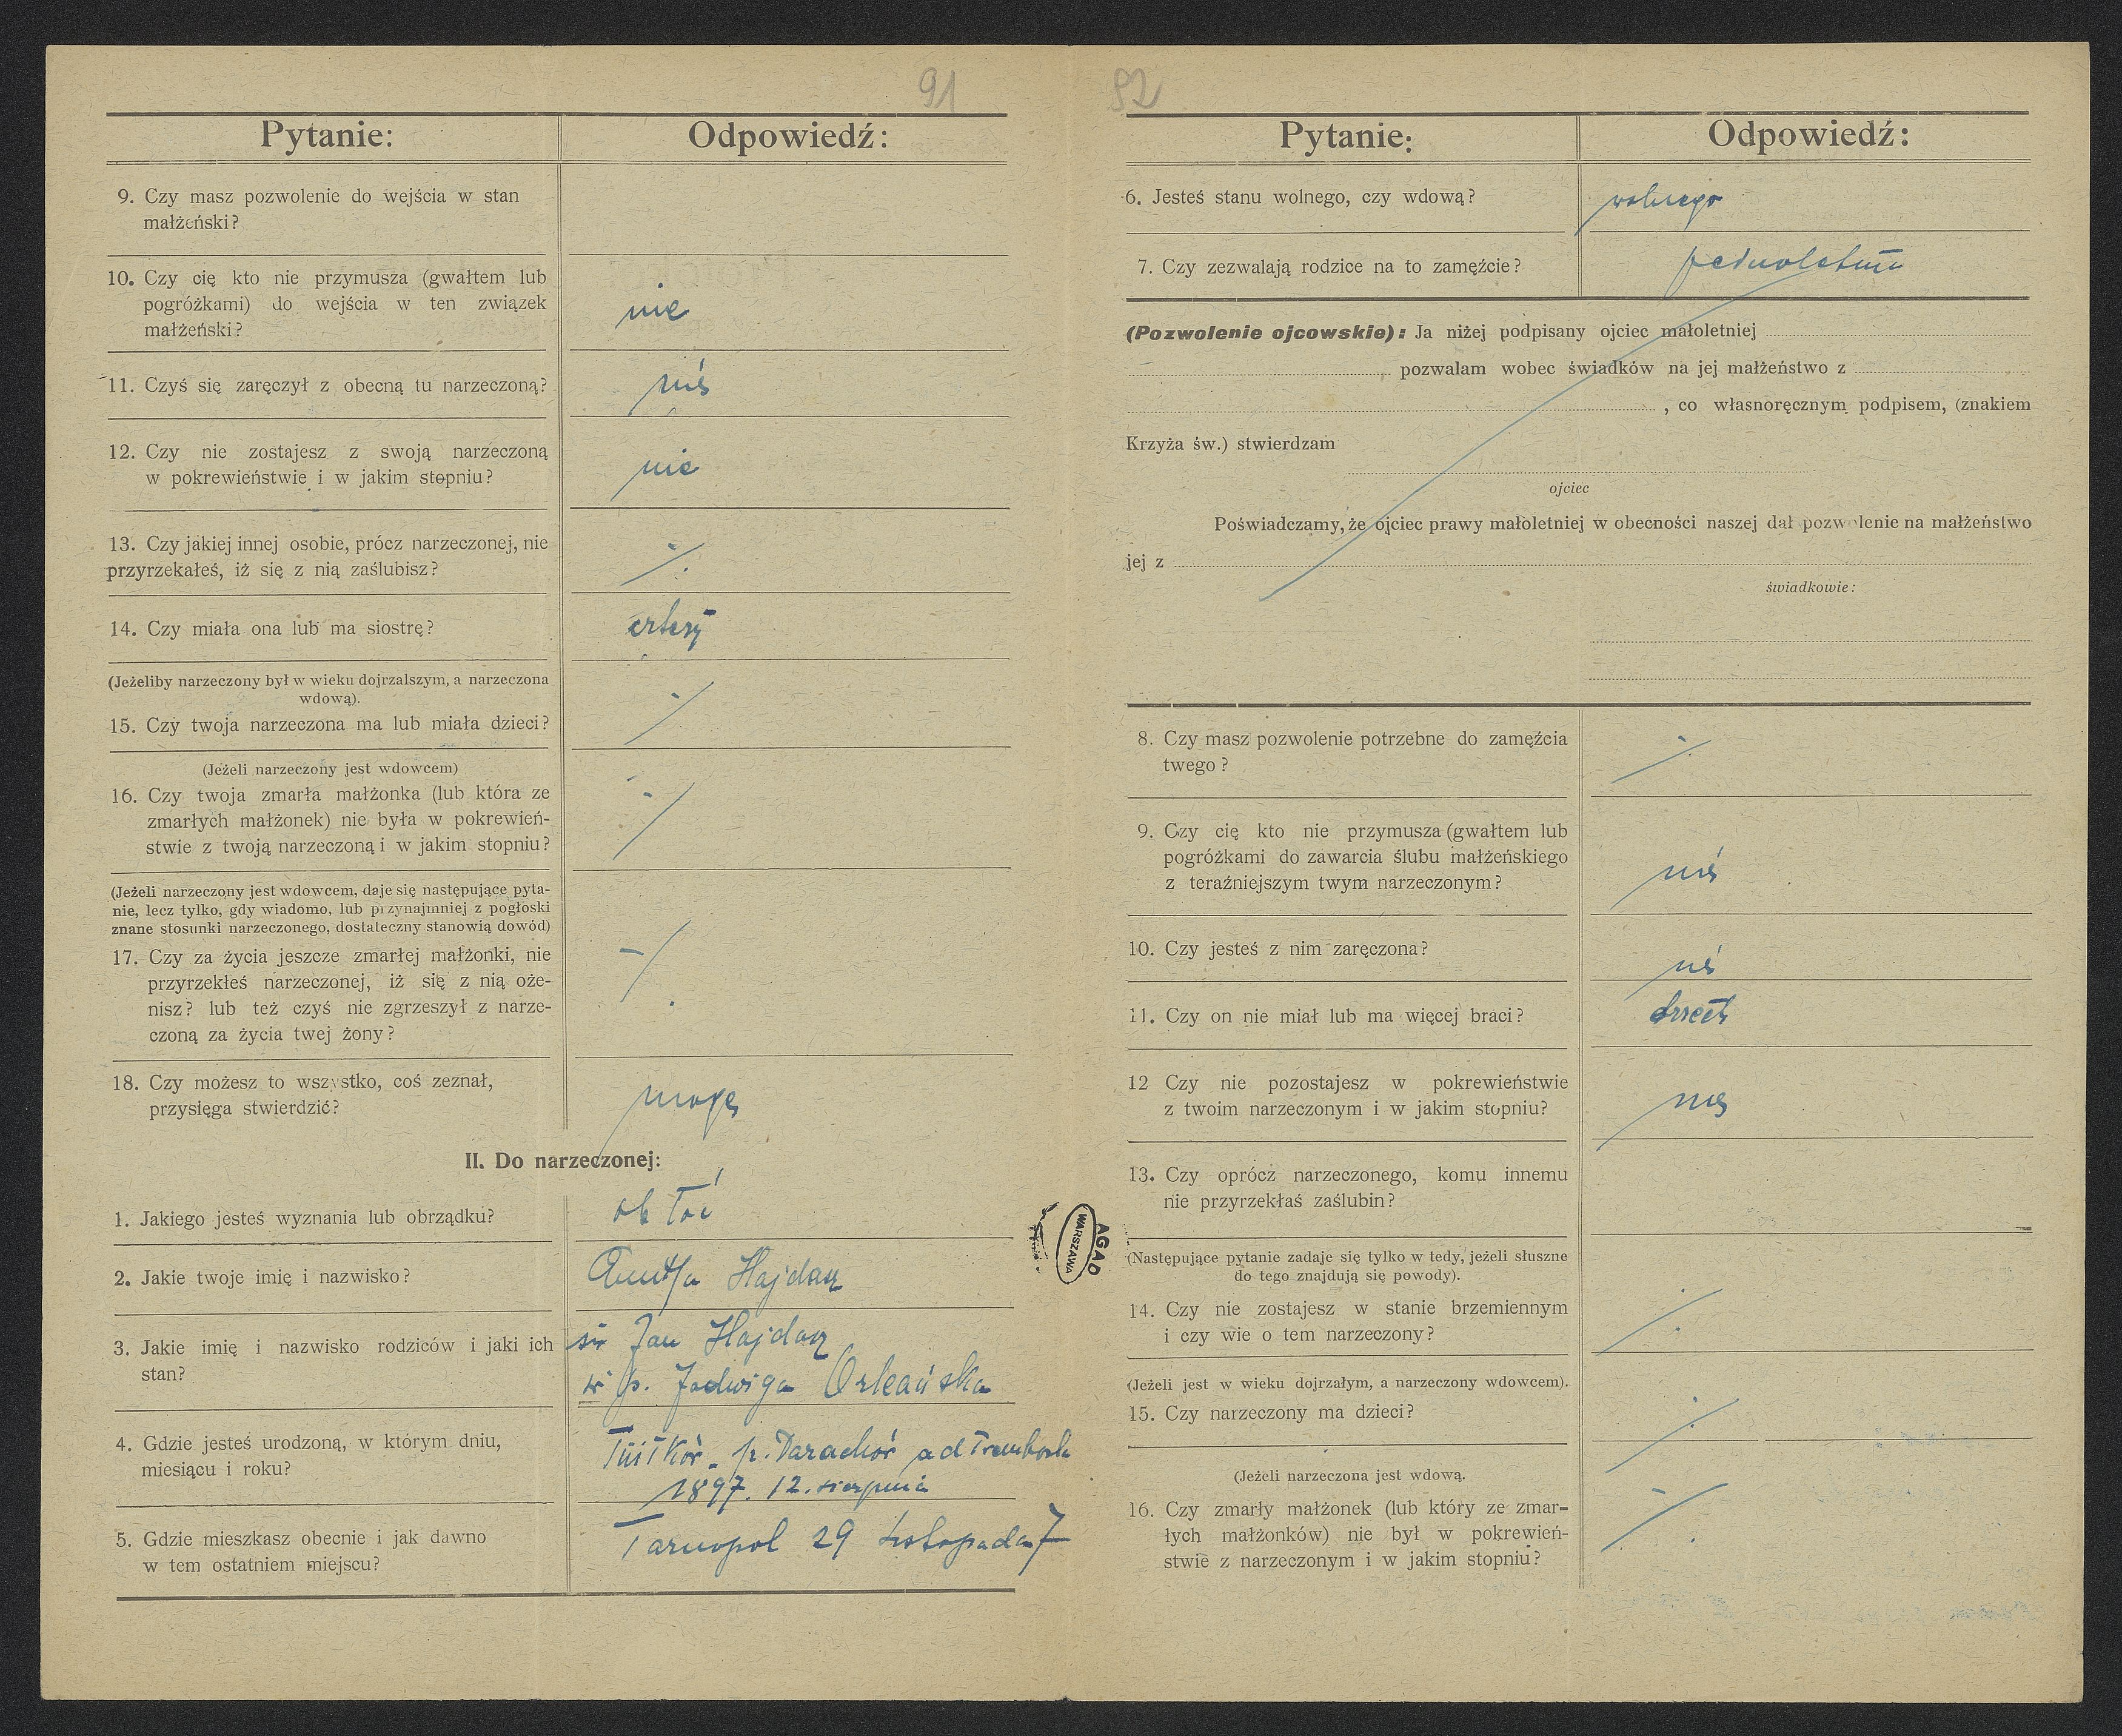 91
Pytanie:
Odpowiedź:
9. Czy masz pozwolenie do wejścia w stan
małżeński?
10. Czy cię kto nie przymusza (gwałtem lub
pogróżkami) do wejścia w ten związek
małżeński?
nie
11. Czyś się zaręczył z obecną tu narzeczoną?
nie
12. Czy nie zostajesz z swoją narzeczoną
w pokrewieństwie i w jakim stopniu?
nie
13. Czy jakiej innej osobie, prócz narzeczonej, nie
przyrzekałeś, iż się z nią zaślubisz?
14. Czy miała ona lub ma siostrę?
cztery
(Jeżeliby narzeczony był w wieku dojrzalszym, a narzeczona
wdową).
15. Czy twoja narzeczona ma lub miała dzieci?
(Jeżeli narzeczony jest wdowcem)
16. Czy twoja zmarła małżonka (lub która ze
zmarłych małżonek) nie była w pokrewień-
stwie z twoją narzeczoną i w jakim stopniu?
(Jeżeli narzeczony jest wdowcem, daje się następujące pyta-
nie, lecz tylko, gdy wiadomo, lub przynajmniej z pogłoski
znane stosunki narzeczonego, dostateczny stanowią dowód)
17. Czy za życia jeszcze zmarłej małżonki, nie
przyrzekłeś narzeczonej, iż się z nią oże-
nisz? lub też czyś nie zgrzeszył z narze-
czoną za życia twej żony?
18. Czy możesz to wszystko, coś zeznał,
przysięga stwierdzić?
mogę
II. Do narzeczonej:
1. Jakiego jesteś wyznania lub obrządku?
ob łać
2. Jakie twoje imię i nazwisko?
Hajdasz
3. Jakie imię i nazwisko rodziców i jaki ich
stan?
Jan Hajdasz
p. Jadwiga Orleańska
4. Gdzie jesteś urodzoną, w którym dniu,
miesiącu i roku?
p. Darachów ad
1897. 12. sierpnia
5. Gdzie mieszkasz obecnie i jak dawno
w tem ostatniem miejscu?
Tarnopol 29 listopada 7
AGAD
WARSZAWA
92
Pytanie:
Odpowiedź:
6. Jesteś stanu wolnego, czy wdową?
wolnego
7. Czy zezwalają rodzice na to zamęźcie?
pełnoletnia
(Pozwolenie ojcowskie): Ja niżej podpisany ojciec małoletniej
pozwalam wobec świadków na jej małżeństwo z
, co własnoręcznym podpisem, (znakiem
Krzyża św.) stwierdzam
ojciec
Poświadczamy, że ojciec prawy małoletniej w obecności naszej dał pozwolenie na małżeństwo
jej z
świadkowie:
8. Czy masz pozwolenie potrzebne do zamęźcia
twego?
9. Czy cię kto nie przymusza (gwałtem lub
pogróżkami do zawarcia ślubu małżeńskiego
z teraźniejszym twym narzeczonym?
nie
10. Czy jesteś z nim zaręczona?
nie
11. Czy on nie miał lub ma więcej braci?
trzech
12 Czy nie pozostajesz w pokrewieństwie
z twoim narzeczonym i w jakim stopniu?
nie
13. Czy oprócz narzeczonego, komu innemu
nie przyrzekłaś zaślubin?
(Następujące pytanie zadaje się tylko w tedy, jeżeli słuszne
do tego znajdują się powody).
14. Czy nie zostajesz w stanie brzemiennym
i czy wie o tem narzeczony?
(Jeżeli jest w wieku dojrzałym, a narzeczony wdowcem).
15. Czy narzeczony ma dzieci?
(Jeżeli narzeczona jest wdową.
16. Czy zmarły małżonek (lub który ze zmar-
łych małżonków) nie był w pokrewień-
stwie z narzeczonym i w jakim stopniu?